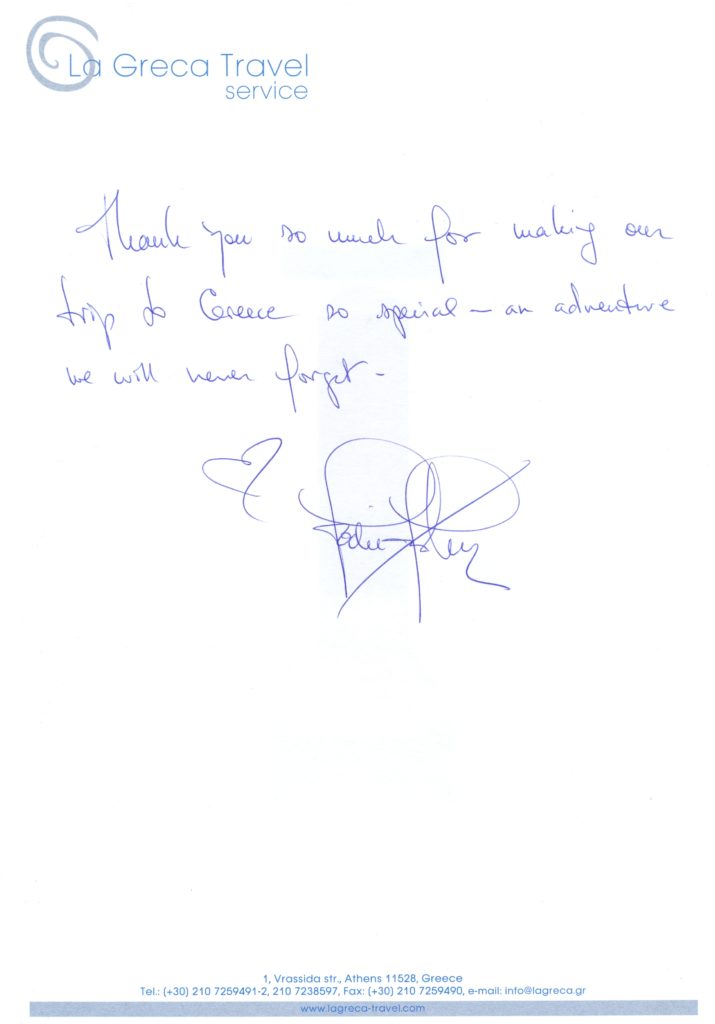 La Greca Travel
service
Thank you so much for making our
trip to Greece so special – an adventure
we will never forget –
1, Vrassida str., Athens 11528, Greece
Tel.: (+30) 210 7259491-2, 210 7238597, Fax: (+30) 210 7259490, e-mail: info@lagreca.gr
www.lagreca-travel.com